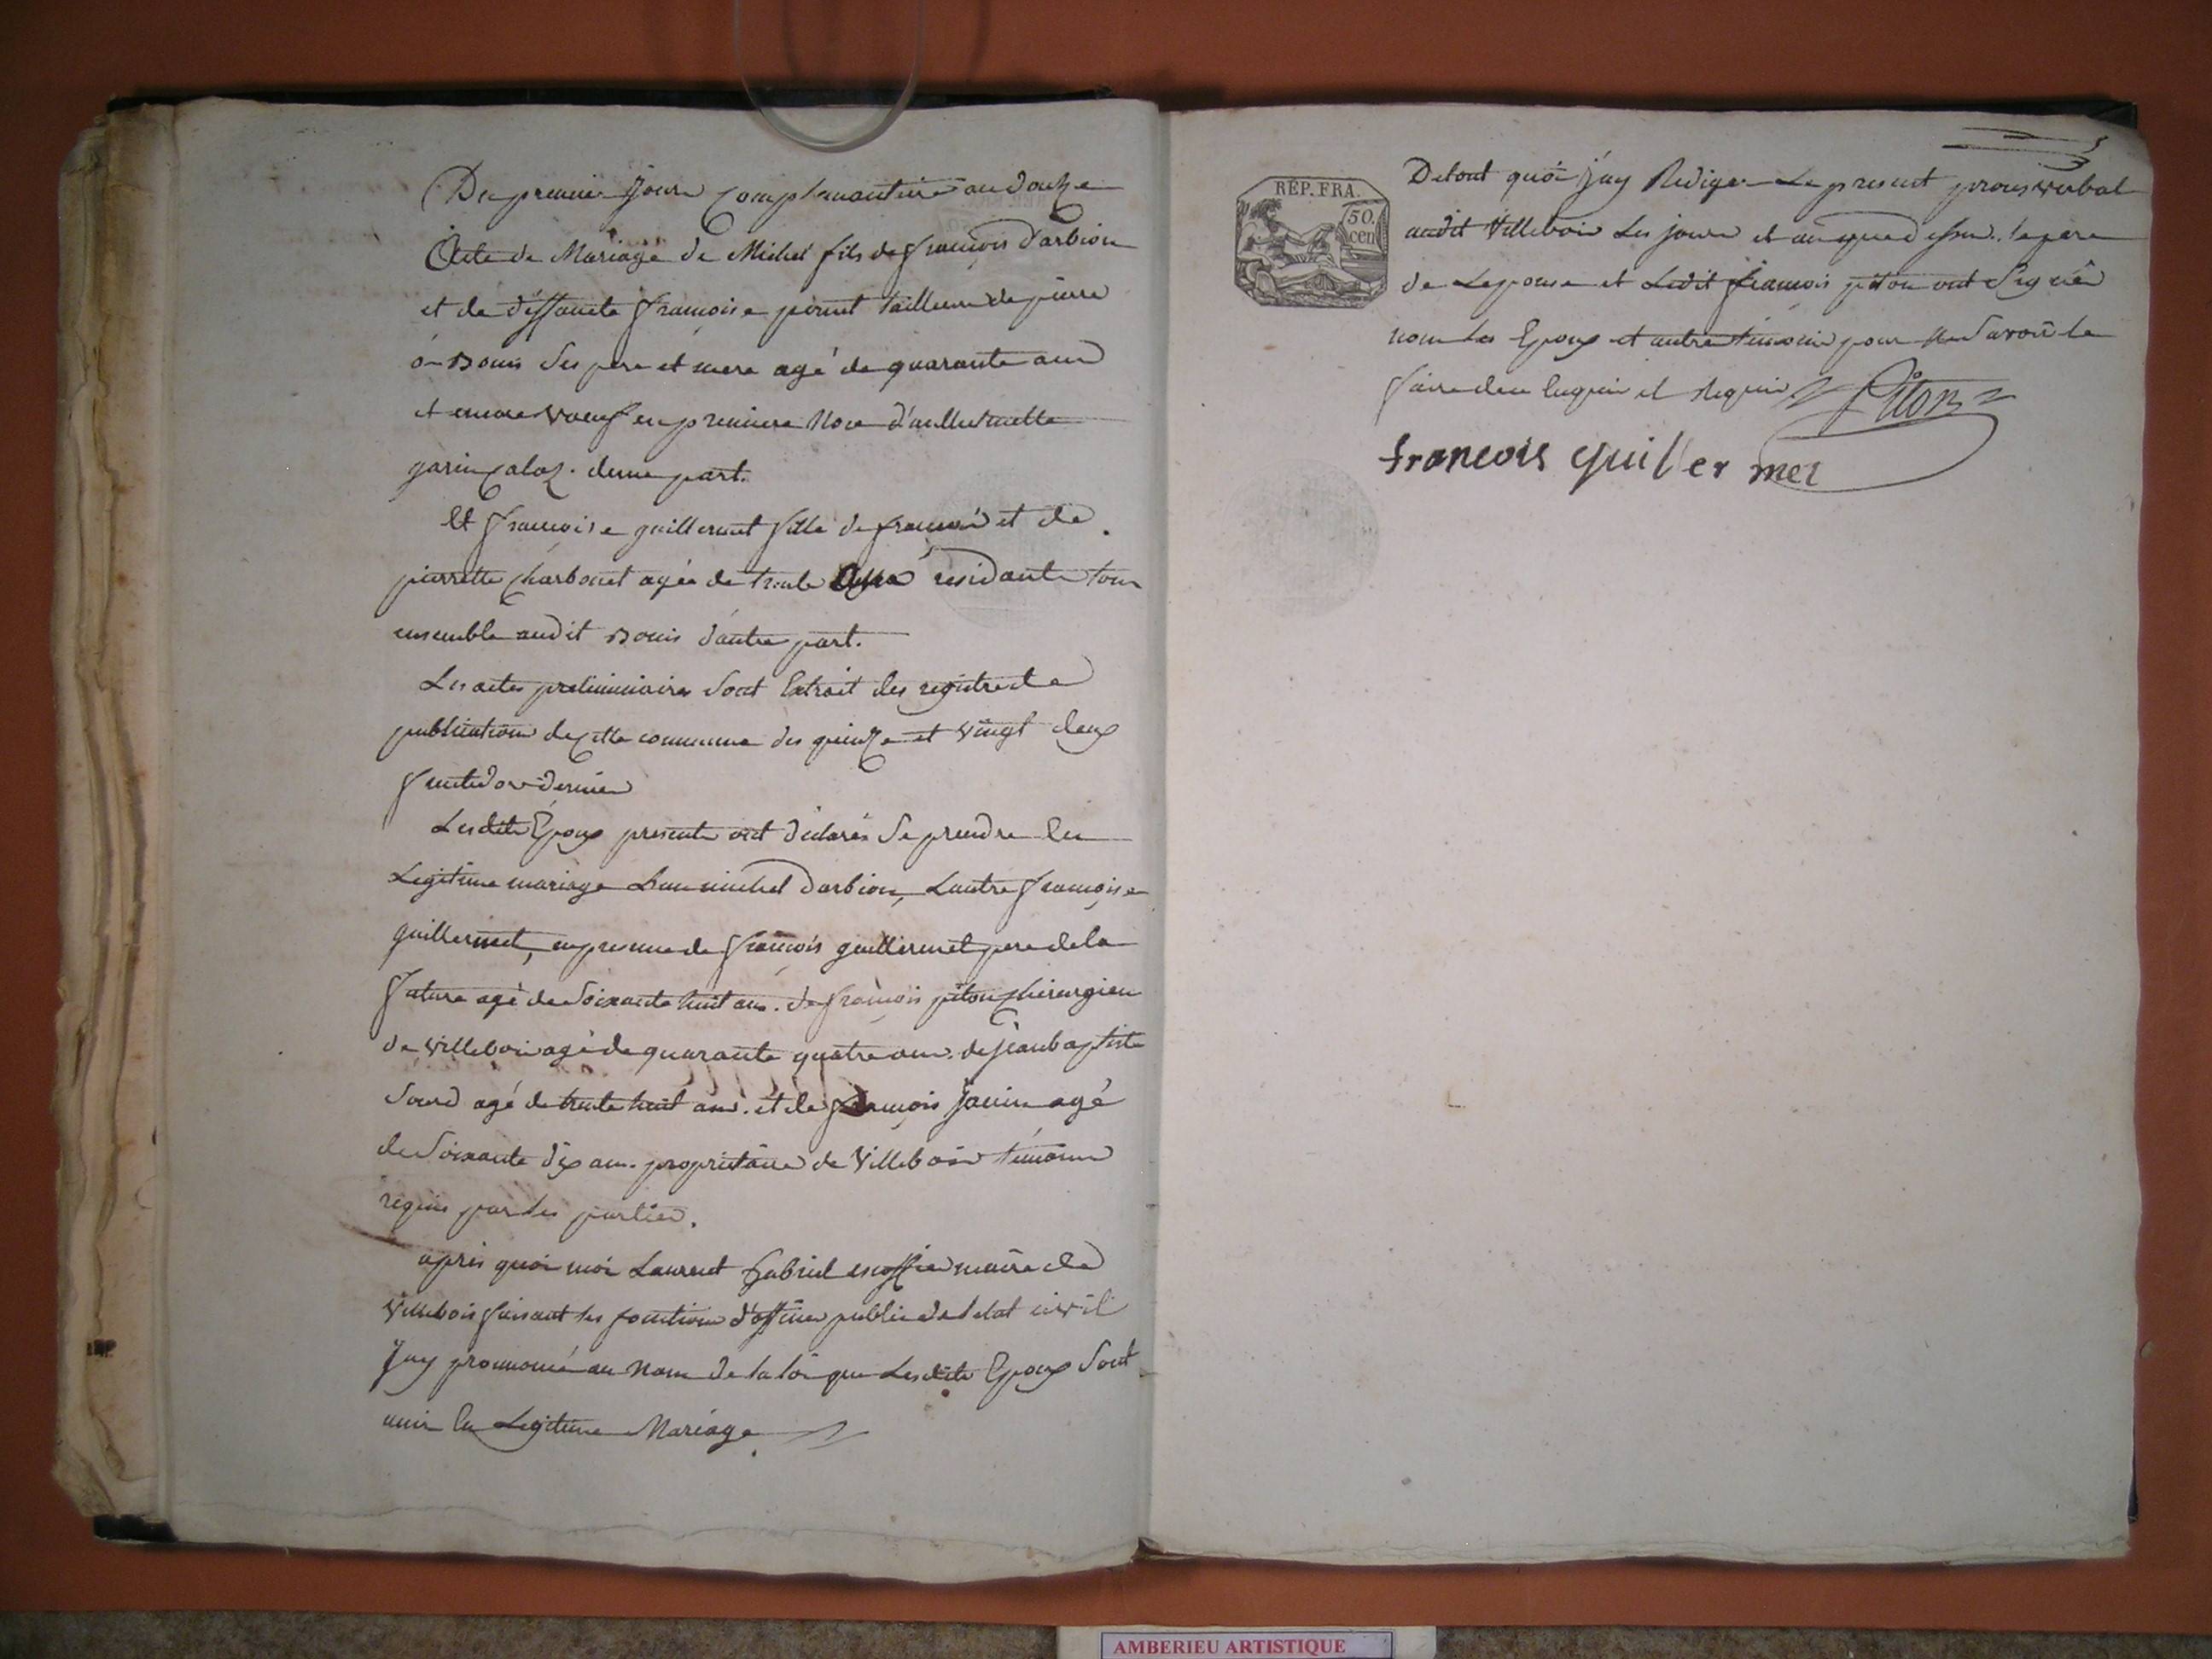 Du premier Jour Complemantaire an douze
Acte de Mariage de Michel fils de françois Darbion
et de déffuncte françoise perret tailleur de pierre
a Bouis Ses pere et mere agé de quarante ans
et encore vueuf en premiere Noce
garin d'une part.
Et françoise guillermet fille de françois et de
pierrette Charbonet agée de trente residante tous
ensemble audit Bouis dautre part.
Les actes preliminaires Sont Extrait des registre de
publication de Cette commune des quinze et vingt deux
fructidor dernier
Lesdits Epoux presents ont déclarés Se prendre En
Legitime mariage Lun michel Darbion, Lautre françoise
guillermet, en presence de françois guillermet pere de la
future agé de Soixante huit ans. de françois piton Chirurgien
de Villebois agé de quarante quatre ans. de Jean baptiste
Sourd agé de trente huit ans. et de françois Janin agé
de Soixante dix ans. proprietaire de Villebois témoins
requis par les parties.
après quoi moi Laurent Gabriel escoffier maire de
Villebois faisant les fonctions d'officier public de letat civil
Jay prononcé au Nom de la loi que Lesdits Epoux Sont
unis En Legitime Mariage
REP. FRA.
50.
cen
De tout quoi j'ay Rediger Le present procès verbal
audit Villebois Les jours et an que dessus. le pere
de Lepouse et Ledit françois piton ont Signés
non les Epoux et autre témoins pour ne Savoir le
faire de ce Enquis et Requis Piton
francois guillermet
AMBERIEU ARTISTIQUE